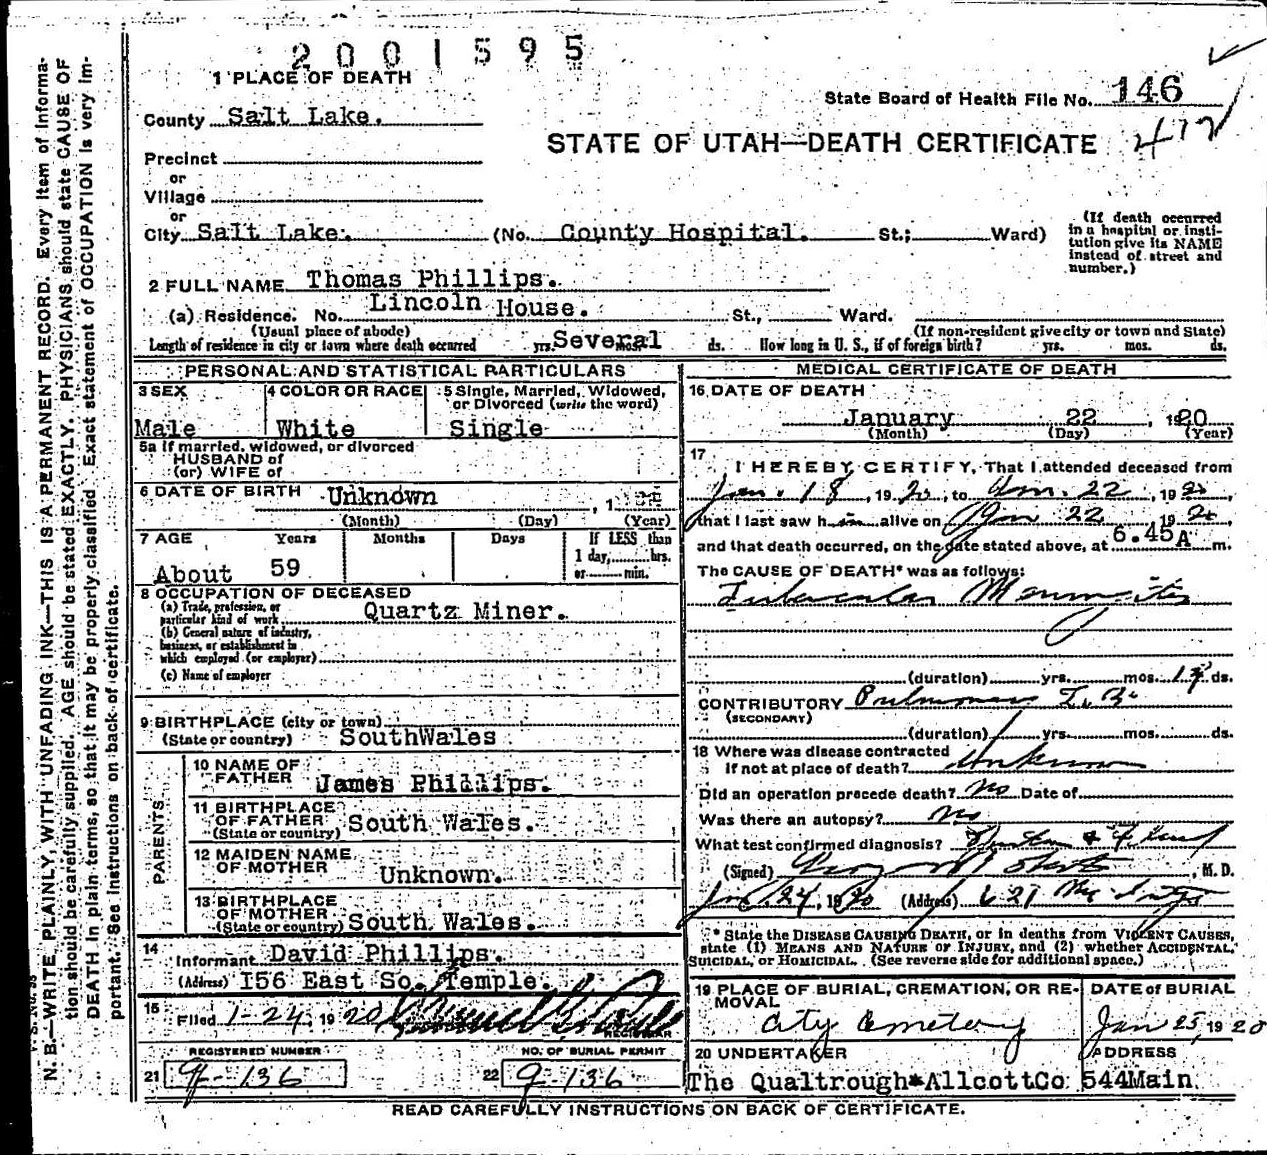 2001595
1 PLACE OF DEATH
State Board of Health File No. 146
County Salt Lake.
STATE OF UTAH—DEATH CERTIFICATE
Precinct
or
Village
or
City Salt Lake. (No. County Hospital. St.; Ward)
(If death occurred
in a hospital or insti-
tution give its NAME
instead of street and
number.)
2 FULL NAME Thomas Phillips.
(a) Residence. No. Lincoln House. St., Ward.
(Usual place of abode) (If non-resident give city or town and State)
Length of residence in city or town where death occurred yrs. Several mos. ds. How long in U. S., if of foreign birth? yrs. mos. ds.
PERSONAL AND STATISTICAL PARTICULARS
3 SEX 4 COLOR OR RACE 5 Single, Married, Widowed,
or Divorced (write the word)
Male White Single
5a If married, widowed, or divorced
HUSBAND of
(or) WIFE of
6 DATE OF BIRTH Unknown , 1
(Month) (Day) (Year)
7 AGE Years Months Days If LESS than
1 day, hrs.
or min.
About 59
8 OCCUPATION OF DECEASED
(a) Trade, profession, or
particular kind of work Quartz Miner.
(b) General nature of industry,
business, or establishment in
which employed (or employer)
(c) Name of employer
9 BIRTHPLACE (city or town)
(State or country) SouthWales
PARENTS
10 NAME OF
FATHER James Phillips.
11 BIRTHPLACE
OF FATHER
(State or country) South Wales.
12 MAIDEN NAME
OF MOTHER Unknown.
13 BIRTHPLACE
OF MOTHER
(State or country) South Wales.
14 Informant David Phillips.
(Address) I56 East So. Temple.
15 Filed 1-24, 1920
REGISTRAR
REGISTERED NUMBER NO. OF BURIAL PERMIT
21 9-136 22 9-136
MEDICAL CERTIFICATE OF DEATH
16 DATE OF DEATH
January 22 , 1920
(Month) (Day) (Year)
17 I HEREBY CERTIFY, That I attended deceased from
Jan. 18, 1920, to Jan. 22, 1920,
that I last saw h im alive on Jan 22 1920
and that death occurred, on the date stated above, at 6.45A m.
The CAUSE OF DEATH* was as follows:
Tubercular Meningitis
(duration) yrs. mos. ds.
CONTRIBUTORY Pulmonary T.B.
(SECONDARY)
(duration) yrs. mos. ds.
18 Where was disease contracted
If not at place of death? Unknown
Did an operation precede death? No Date of
Was there an autopsy? No
What test confirmed diagnosis?
(Signed) , M. D.
Jan. 24, 1920 (Address) 621
* State the DISEASE CAUSING DEATH, or in deaths from VIOLENT CAUSES,
state (1) MEANS AND NATURE OF INJURY, and (2) whether ACCIDENTAL,
SUICIDAL, or HOMICIDAL. (See reverse side for additional space.)
19 PLACE OF BURIAL, CREMATION, OR RE-
MOVAL
City Cemetery
DATE of BURIAL
Jan 25, 1920
20 UNDERTAKER ADDRESS
The Qualtrough*AllcottCo 544Main
READ CAREFULLY INSTRUCTIONS ON BACK OF CERTIFICATE.
N. B.—WRITE PLAINLY, WITH UNFADING INK—THIS IS A PERMANENT RECORD. Every item of informa-
tion should be carefully supplied. AGE should be stated EXACTLY. PHYSICIANS should state CAUSE OF
DEATH in plain terms, so that it may be properly classified. Exact statement of OCCUPATION is very im-
portant. See instructions on back of certificate.